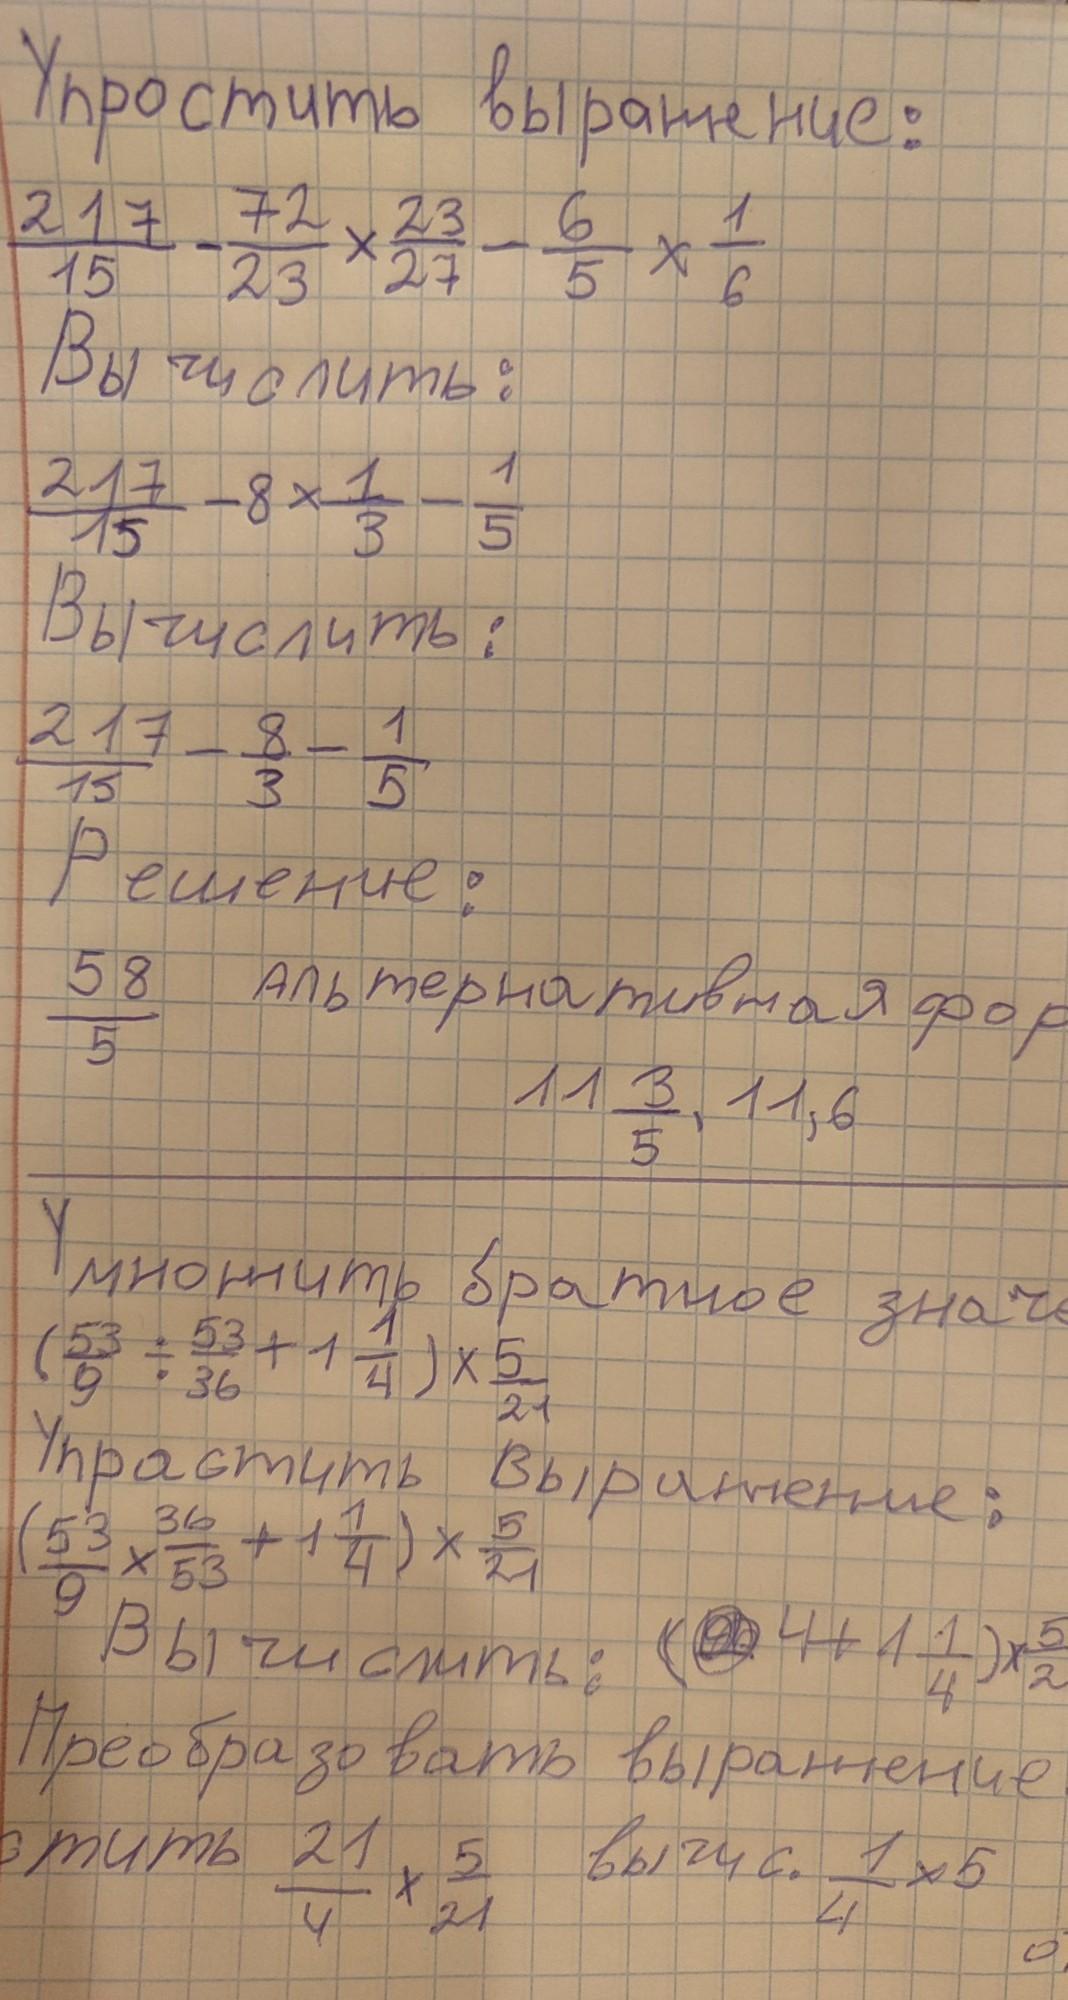 Упростить выражение:
217/15 - 72/23 × 23/27 - 6/5 × 1/6
Вычислить:
217/15 - 8 × 1/3 - 1/5
Вычислить:
217/15 - 8/3 - 1/5
Решение:
58/5 Альтернативная фор
11 3/5, 11,6
Умножить братное значе
(53/9 ÷ 53/36 + 1 1/4) × 5/21
Упрастить Выражение:
(53/9 × 36/53 + 1 1/4) × 5/21
Вычислить: (4 + 1 1/4) × 5/2
Преобразовать выражение
стить 21/4 × 5/21 вычис. 1/4 × 5